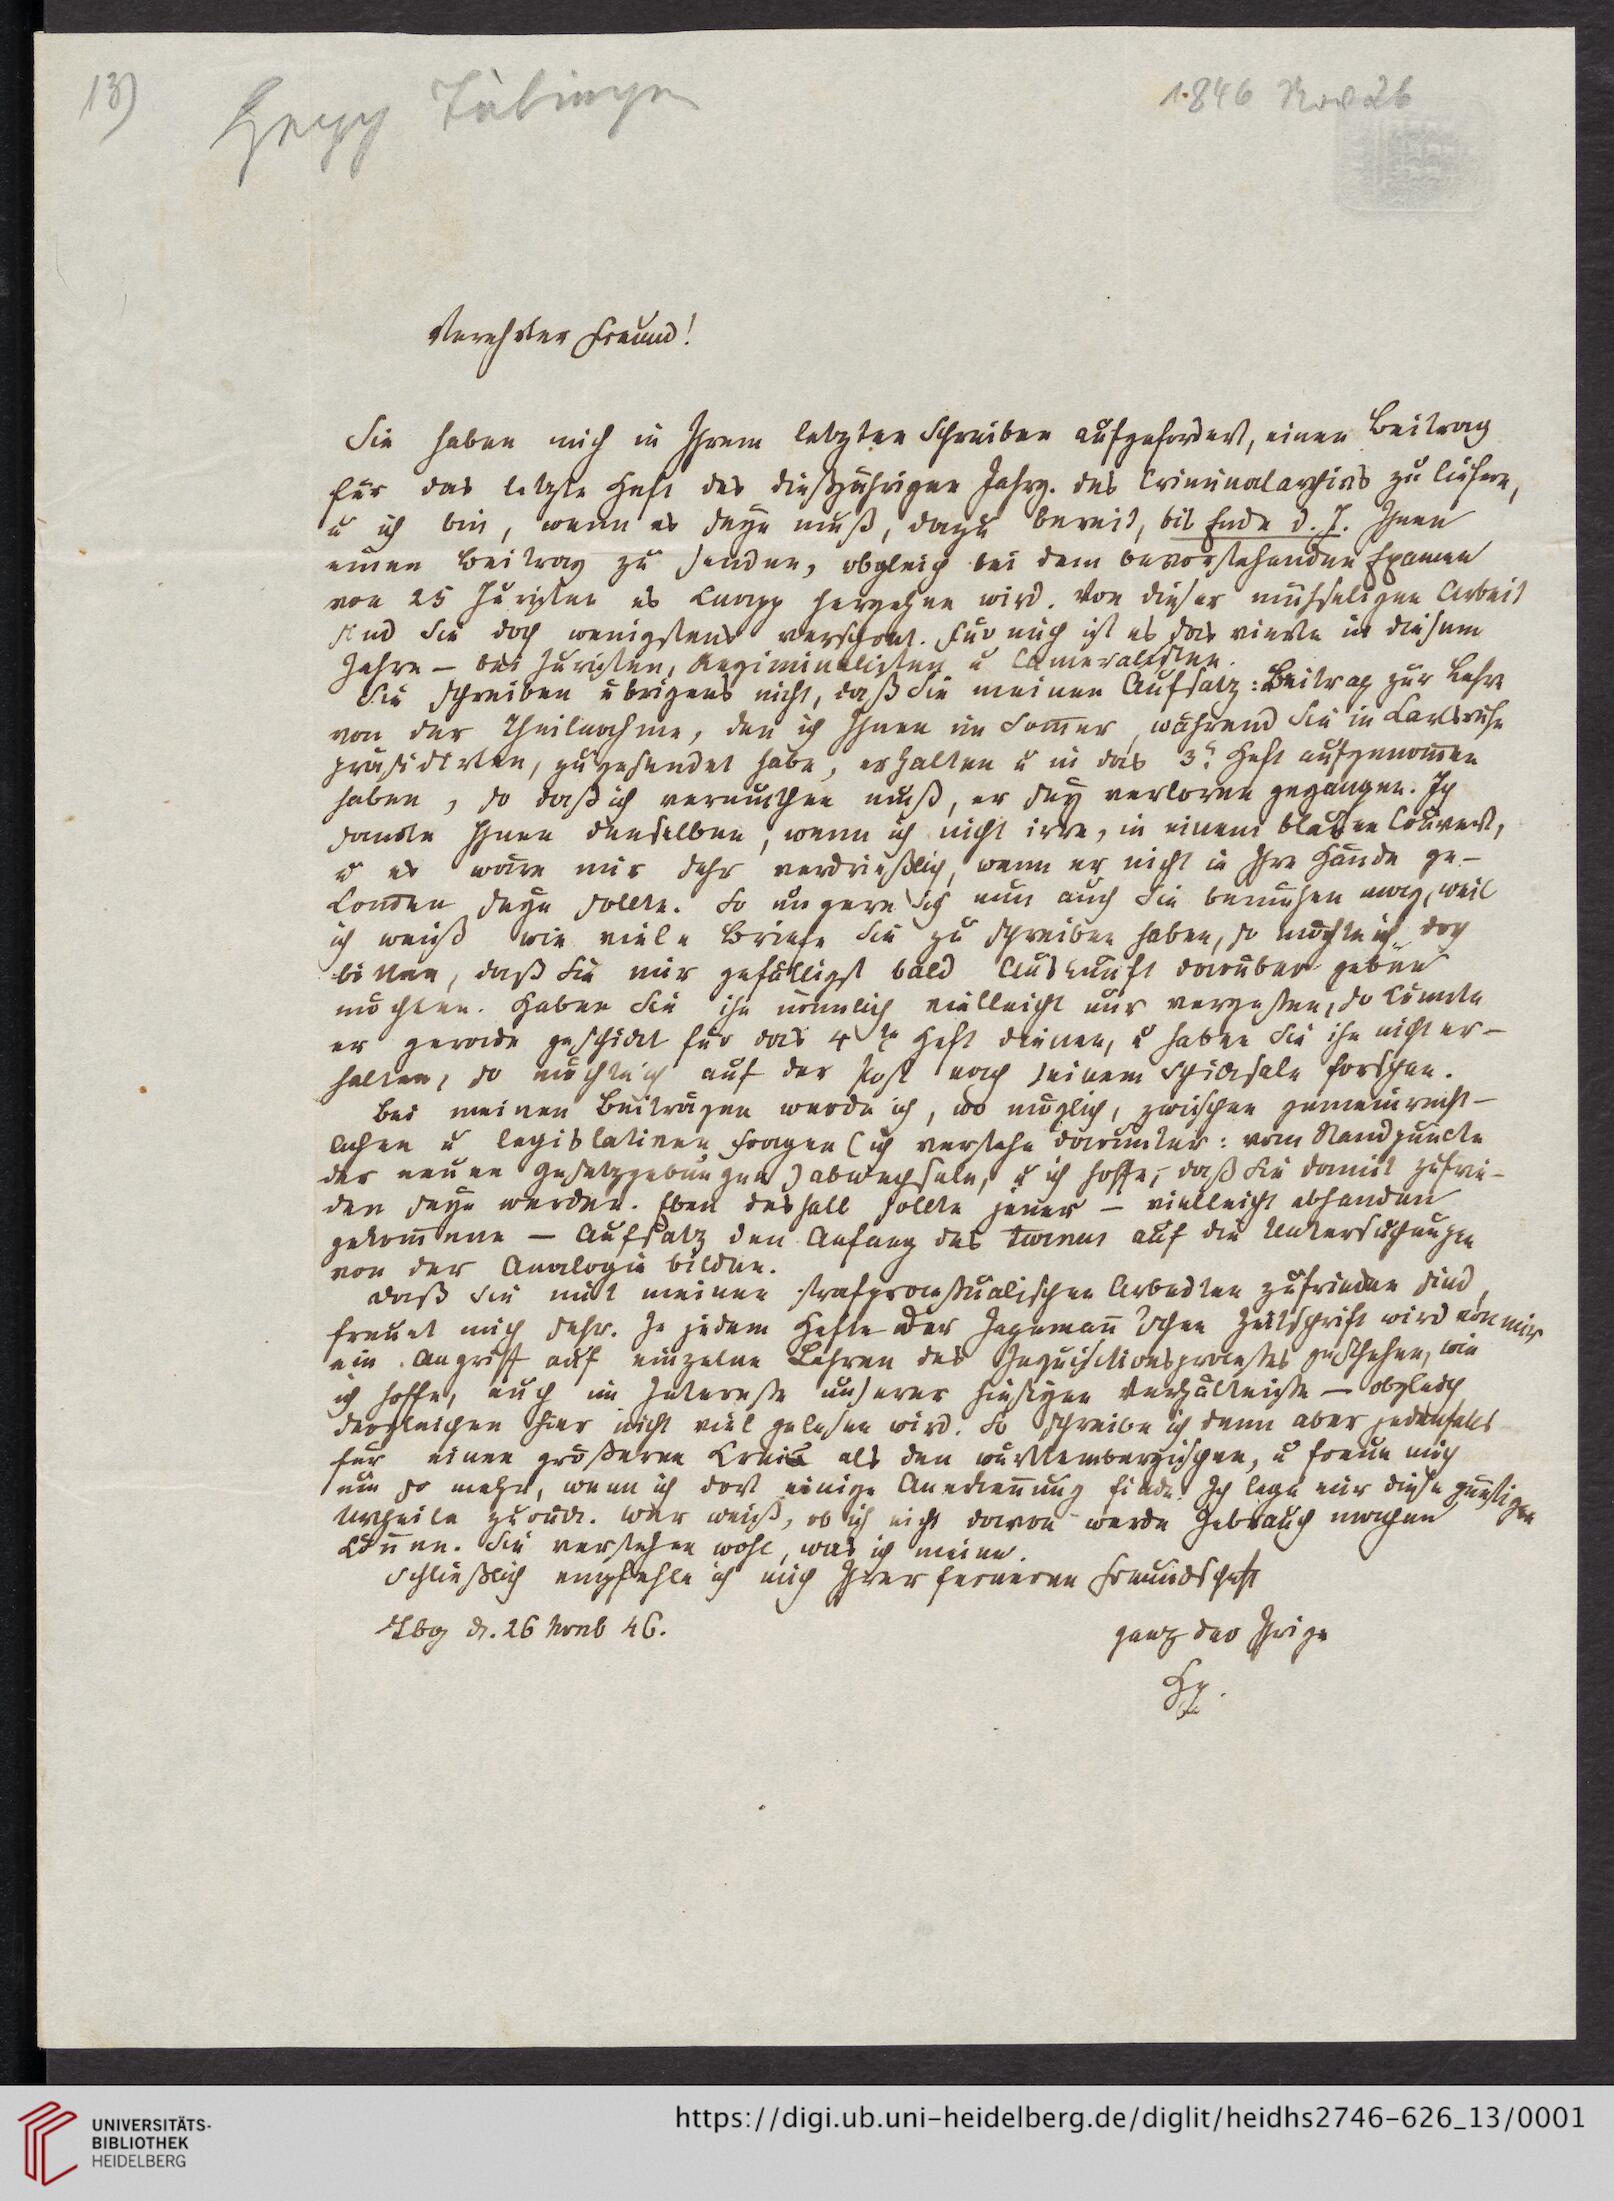 13)
Hepp Tübingen
1846 Nov 26
Verehrter Freund!
Sie haben mich in Ihrem letzten Schreiben aufgefordert, einen Beitrag
für das letzte Heft des dießjährigen Jahrg. des Criminalarchivs zu liefern,
u ich bin, wenn es seyn muß, dazu bereit, bis Ende d. J. Ihnen
einen Beitrag zu senden, obgleich bei dem bevorstehenden Examen
von 25 Juristen es knapp hergehen wird. Von dieser mühseligen Arbeit
sind Sie doch wenigstens verschont. Für mich ist es das vierte in diesem
Jahre – bei Juristen, Regiminalisten u Cameralisten.
Sie schreiben übrigens nicht, daß Sie meinen Aufsatz: Beitrag zur Lehre
von der Theilnahme, den ich Ihnen im Som̄er, während Sie in Karlsruhe
präsidirten, zugesendet habe, erhalten u in das 3te Heft aufgenom̄en
haben, so daß ich vermuthen muß, er sey verloren gegangen. Ich
sandte Ihnen denselben, wenn ich nicht irre, in einem blauen Couvert,
u es wäre mir sehr verdrießlich, wenn er nicht in Ihre Hände ge-
kom̄en seyn sollte. So ungern ich nun auch Sie bemühen mag, weil
ich weiß wie viele Briefe Sie zu schreiben haben, so möchte ich doch
bitten, daß Sie mir gefälligst bald Auskunft darüber geben
möchten. Haben Sie ihn nämlich vielleicht nur vergessen, so könnte
er gerade geschickt für das 4te Heft dienen, u haben Sie ihn nicht er-
halten, so möchte ich auf der Post nach seinem Schicksale forschen.
Bei meinen Beiträgen werde ich, wo möglich, zwischen gemeinrecht-
lichen u legislativen Fragen (ich verstehe darunter: vom Standpuncte
der neuen Gesetzgebungen) abwechseln, u ich hoffe, daß Sie damit zufrie-
den seyn werden. Eben deshalb sollte jener – vielleicht abhanden
gekom̄ene – Aufsatz den Anfang des turnus auf die Untersuchungen
von der Analogie bilden.
Daß Sie mit meinen strafprocessualischen Arbeiten zufrieden sind,
freuet mich sehr. In jedem Hefte der Jageman̄'schen Zeitschrift wird von mir
ein Angriff auf einzelne Lehren des Inquisitionsprocesses geschehen, wie
ich hoffe, auch im Interesse unserer hiesigen Verhältnisse – obgleich
dergleichen hier nicht viel gelesen wird. So schreibe ich denn aber jedenfalls
für einen größeren Kreis als den württembergischen, u freue mich
um so mehr, wenn ich dort einige Anerken̄ung finde. Ich lege mir diese günstigen
Urtheile zurück. Wer weiß, ob ich nicht davon werde Gebrauch machen
kön̄en. Sie verstehen wohl, was ich meine.
Schließlich empfehle ich mich Ihrer ferneren Freundschaft
Tbg d. 26 Novb 46.
ganz der Ihrige
Hp.
UNIVERSITÄTS-
BIBLIOTHEK
HEIDELBERG
https://digi.ub.uni-heidelberg.de/diglit/heidhs2746-626_13/0001